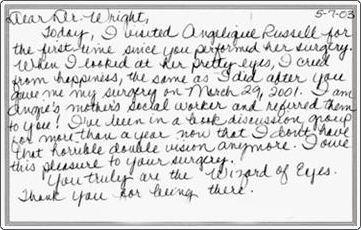 5-7-03
Dear Dr. Wright,
Today, I visited Angelique Russell for
the first time since you performed her surgery.
When I looked at her pretty eyes, I cried
from happiness, the same as I did after you
gave me my surgery on March 29, 2001. I am
Angie's mother's social worker and referred them
to you! I've been in a book discussion group
for more than a year now that I don't have
that horrible double vision anymore. I owe
this pleasure to your surgery.
You truly are the Wizard of Eyes.
Thank you for being there.